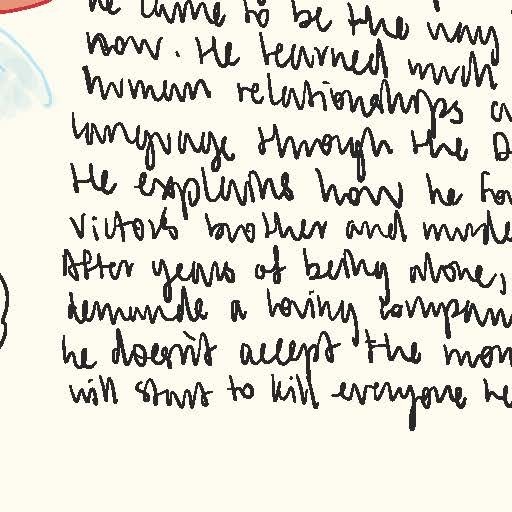 he came to be the way
now. He learned much
human relationships a
language through the D
He explains how he fo
Victor's brother and murde
After years of being alone,
demande a loving compan
he doesn't accept the mon
will start to kill everyone he